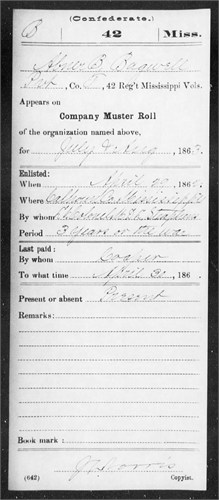 (Confederate.)
B 42 Miss.
Abner B. Bagwell
Pvt, Co. F, 42 Reg't Mississippi Vols.
Appears on
Company Muster Roll
of the organization named above,
for July & Aug, 1863.
Enlisted:
When April 29, 186
Where Calhoun Co. Mississippi
By whom
Period 3 years or the war
Last paid:
By whom Cooper
To what time April 30, 186
Present or absent Present
Remarks:
Book mark:
(642) Morris
Copyist.